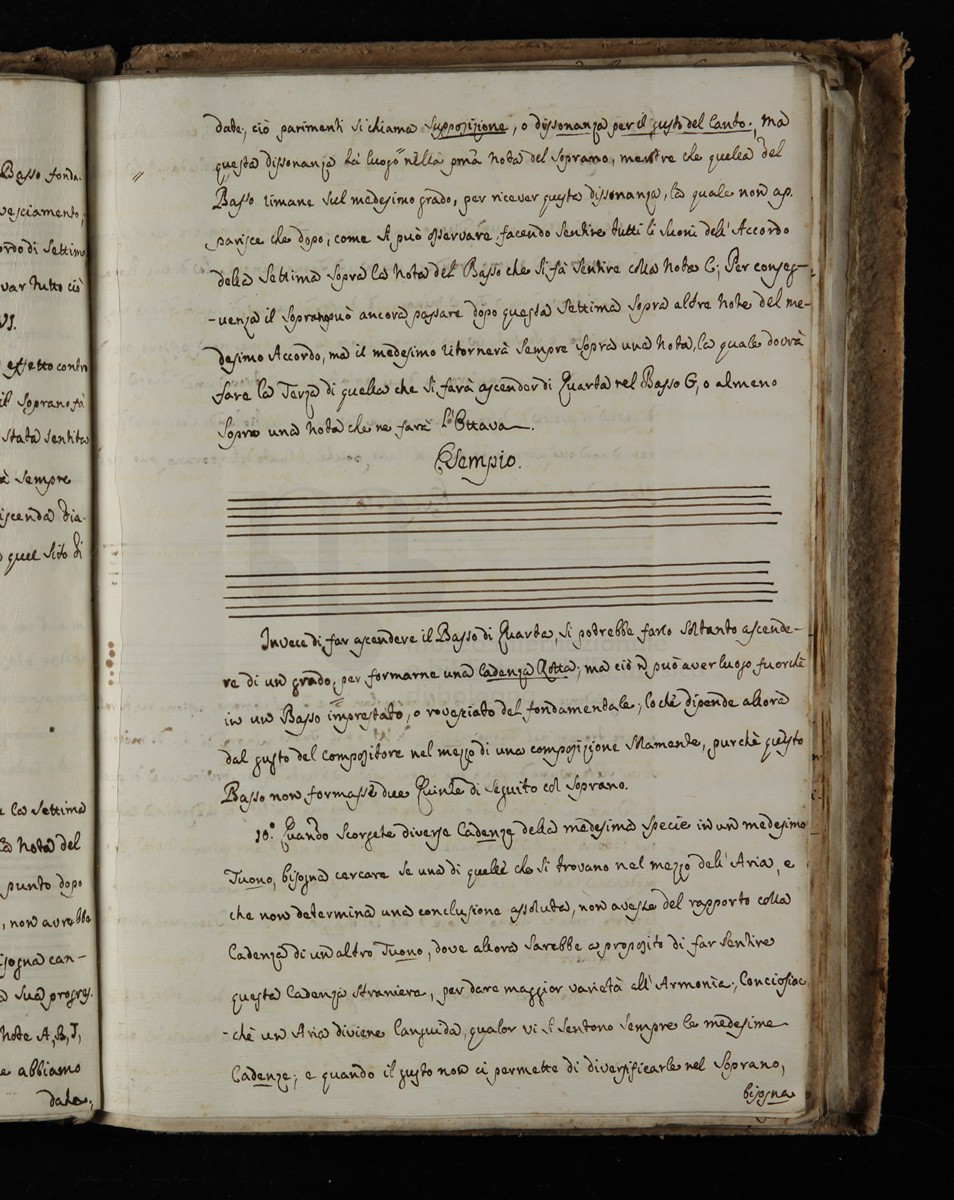 Basso fonda-
vesciamento,
ordo di Settima
var tutto ciò
VI.
effetto contra
il Soprano fà
stata sentita
à sempre
iscenda dia-
quel sito di
la settima
la nota del
punto dopo
, non avrebbe
isogna can-
sua progres.
note A, B, I,
e abbiamo
date;
date; ciò parimenti si chiama supposizione, o dissonanza per il gusto del Canto; mà
questa dissonanza hà luogo nella pma nota del Soprano, mentre che quella del
Basso rimane sul medesimo grado, per ricever questa dissonanza, la quale non ap.
parisce che dopo, come si può osservare facendo sentire tutti li suoni dell'Accordo
della Settima sopra la nota del Basso che si fà sentire colla nota C; Per conseg-
-uenza il Soprano può ancora passare dopo questa Settima sopra altre note del me-
desimo Accordo, ma il medesimo ritornerà sempre sopra una nota, la quale dovrà
fare la Terza di quella che si farà ascender di Quarta nel Basso G, o almeno
sopra una nota che ne farà l'Ottava.
Esempio.
Invece di far ascendere il Basso di Quarta, si potrebbe farlo soltanto ascende-
re di un grado, per formarne una Cadenza Rotta; ma ciò ñ può aver luogo fuorchè
in un Basso imprestato, o rovesciato del fondamendale; lo chè dipende allora
dal gusto del compositore nel mezzo di una composizione solamente, purchè questo
Basso non formasse due Quinte di seguito col Soprano.
10.° Quando scorgete diverse Cadenze della medesima specie in un medesimo
Tuono, bisogna cercare se una di quelle che si trovano nel mezzo dell'Aria, e
che non determina una conclusione assoluta, non avesse del rapporto colla
Cadenza di un altro Tuono, dove allora sarebbe a proposito di far sentire
questa Cadenza straniera, per dare maggior varietà all'Armonia; Conciosiac
-chè un Aria diviene languida, qualor vi si sentono sempre le medesime
Cadenze; e quando il gusto non ci permette di diversificarle nel Soprano,
bisogna